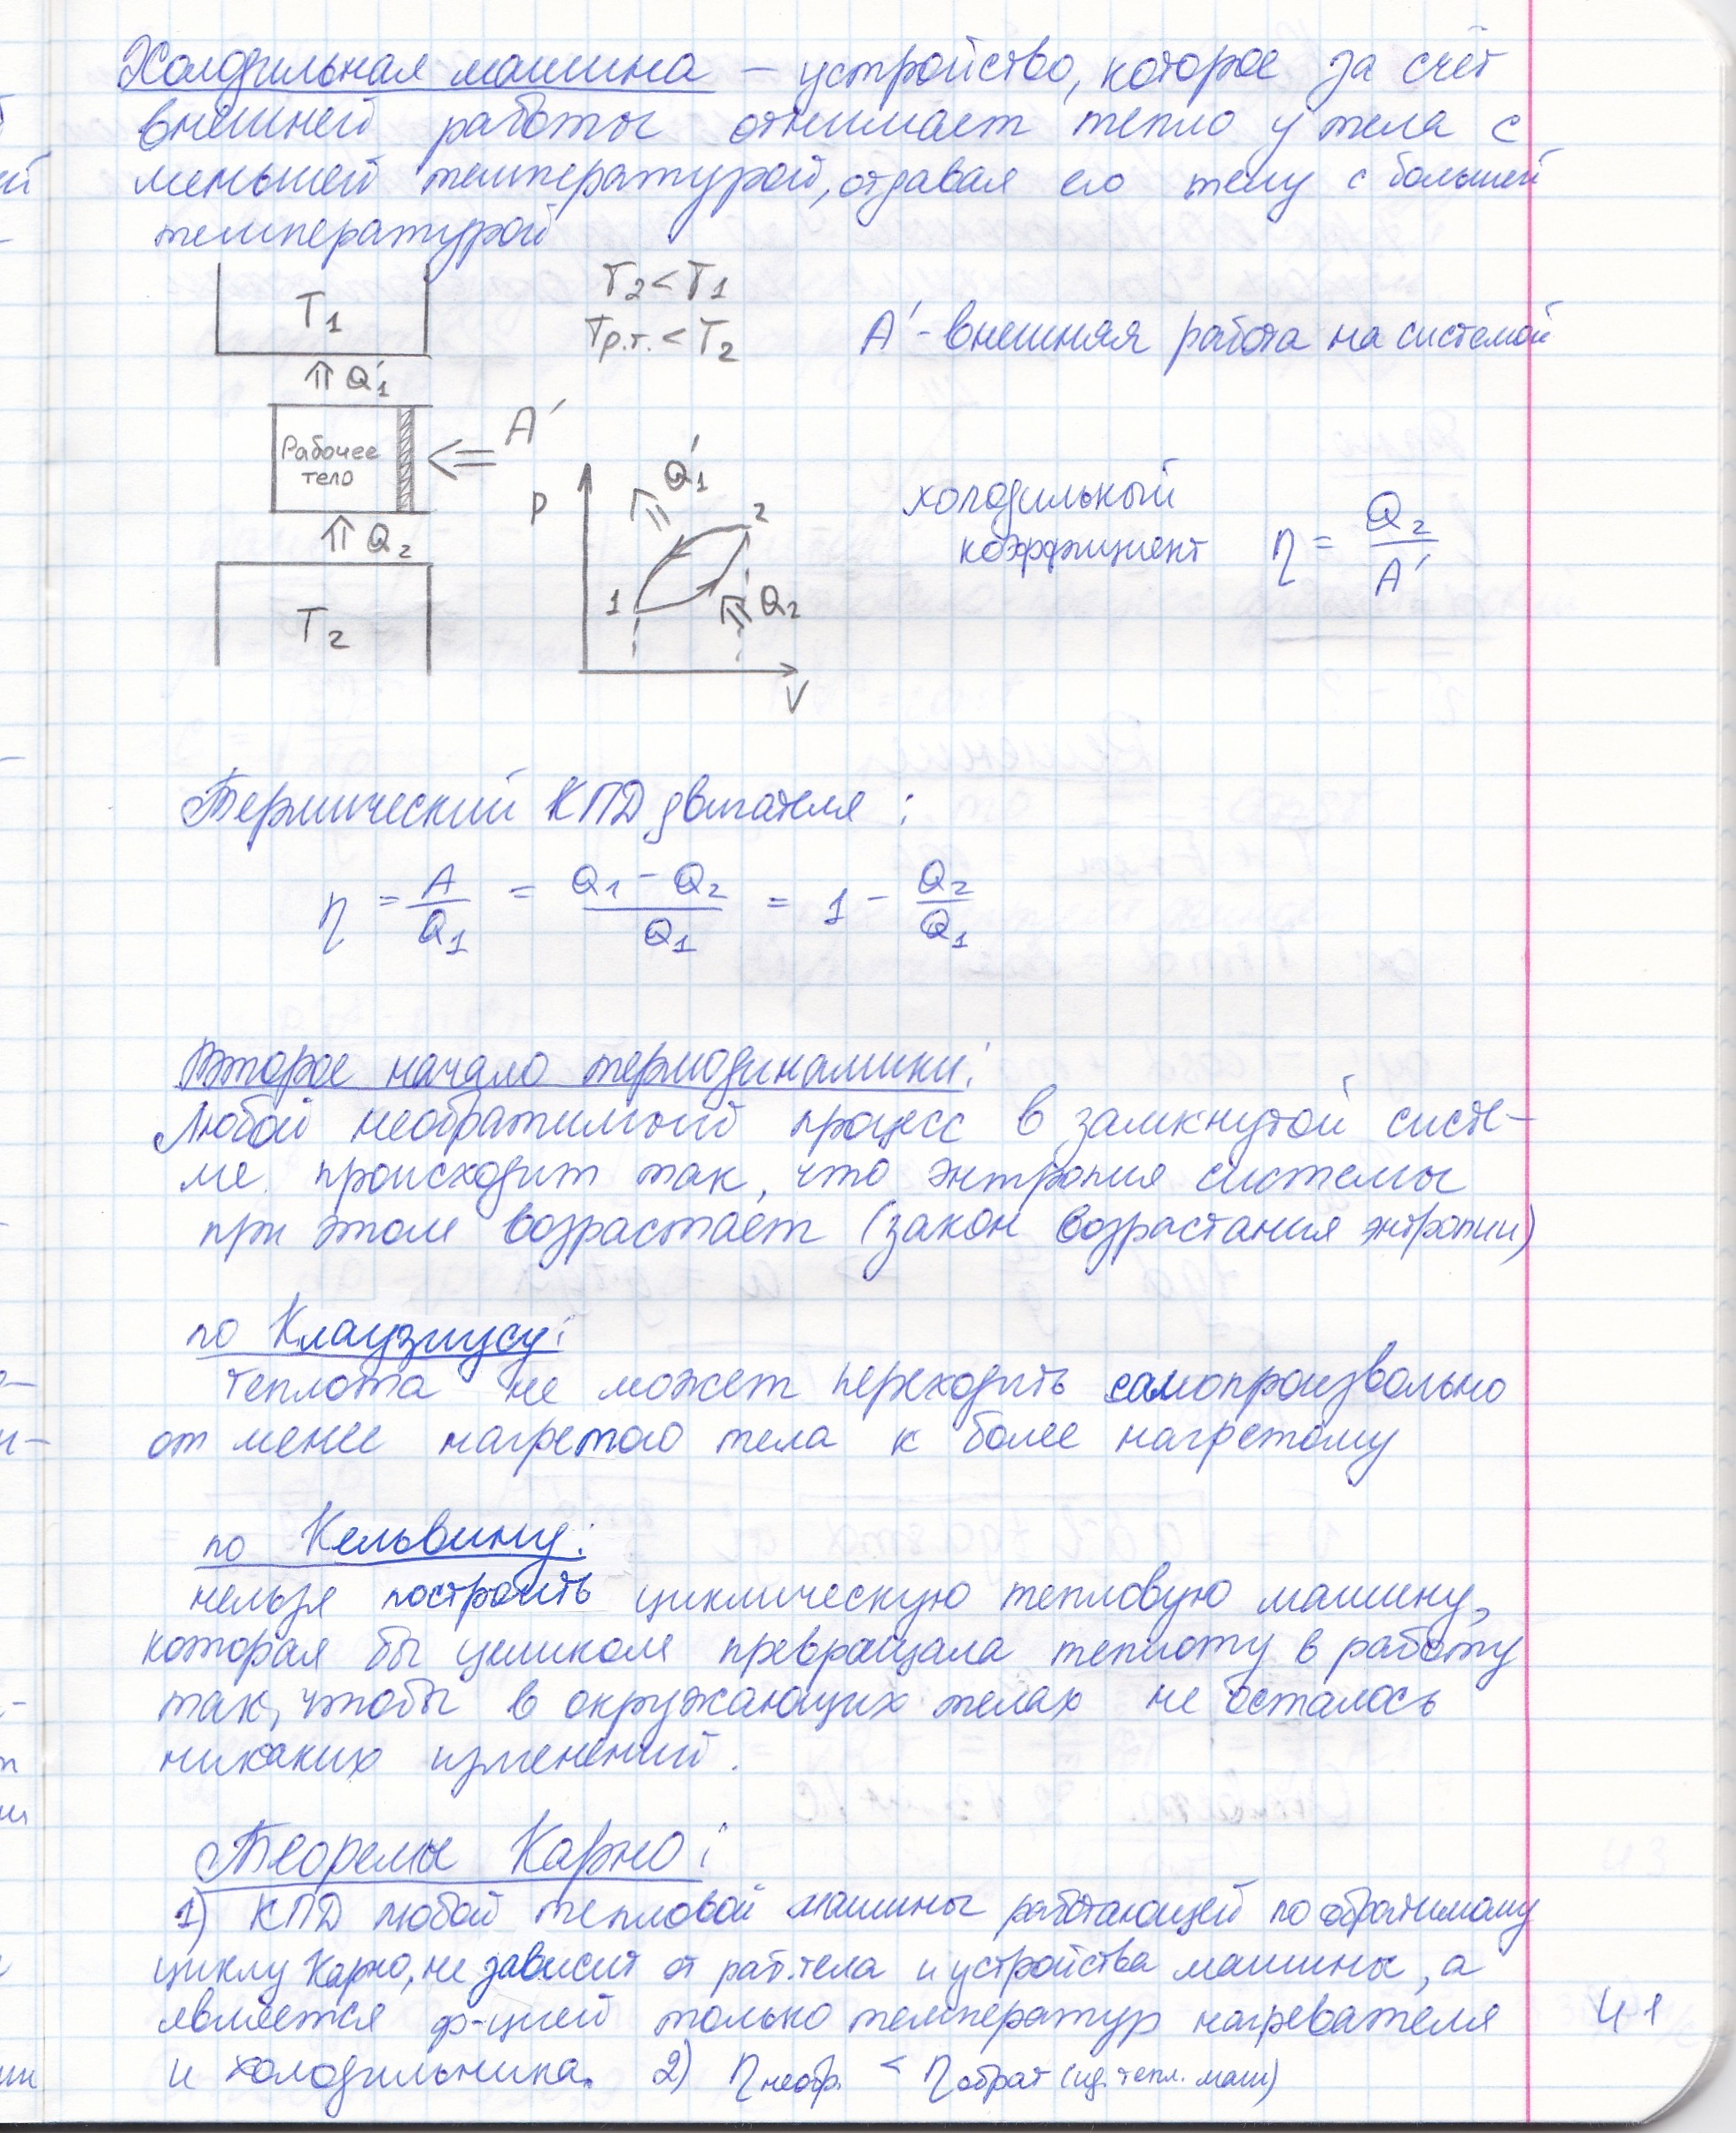 Холодильная машина – устройство, которое за счёт
внешней работы отнимает тепло у тела с
меньшей температурой, отдавая его телу с большей
температурой
T1
T2 < T1
Tр.т. < T2
A′ - внешняя работа на системой
⇑ Q′1
Рабочее
тело
⇐ A′
⇑ Q2
T2
P
Q′1
2
1
Q2
V
холодильный
коэффициент η = Q2 / A′
Термический КПД двигателя :
η = A / Q1 = (Q1 - Q2) / Q1 = 1 - Q2 / Q1
Второе начало термодинамики:
Любой необратимый процесс в замкнутой систе-
ме происходит так, что энтропия системы
при этом возрастает (закон возрастания энтропии)
по Клаузиусу:
теплота не может переходить самопроизвольно
от менее нагретого тела к более нагретому
по Кельвину:
нельзя построить циклическую тепловую машину,
которая бы целиком превращала теплоту в работу
так, чтобы в окружающих телах не осталось
никаких изменений.
Теоремы Карно:
1) КПД любой тепловой машины работающей по обратимому
циклу Карно, не зависит от раб.тела и устройства машины, а
является ф-цией только температур нагревателя
и холодильника. 2) ηнеобр. < ηобрат (ид. тепл. маш)
41